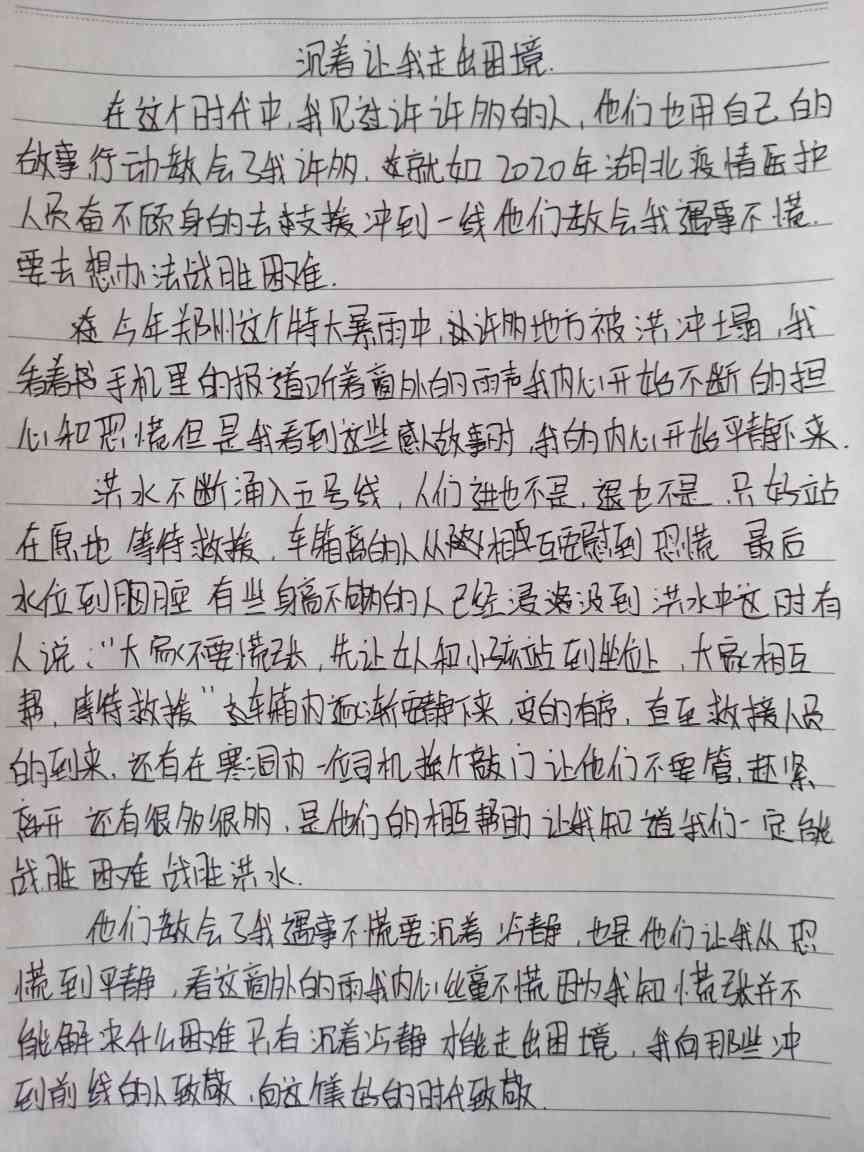 沉着让我走出困境.
在这个时代中,我见过许许多的人,他们也用自己的
故事,行动教会了我许多.就如2020年湖北疫情医护
人员奋不顾身的去支援冲到一线他们教会我遇事不慌.
要去想办法战胜困难.
在今年郑州这个特大暴雨中,许多地方被洪冲塌,我
看着手机里的报道听着窗外的雨声我内心开始不断的担
心和恐慌但是我看到这些感人故事时,我的内心开始平静下来.
洪水不断涌入五号线,人们进也不是,退也不是.只好站
在原地 等待救援,车箱离的人从相互安慰到恐慌 最后
水位到胸腔 有些身高不够的人已经浸没到洪水中这时有
人说:“大家不要慌张,先让女人和小孩站到坐位上,大家相互
帮,等待救援”车箱内逐渐安静下来,变的有序,直至救援人员
的到来.还有在寒洞内一位司机挨个敲门让他们不要管,赶紧
离开 还有很多很多,是他们的相互帮助让我知道我们一定能
战胜困难 战胜洪水.
他们教会了我遇事不慌要沉着冷静,也是他们让我从恐
慌到平静,看这窗外的雨我内心丝毫不慌因为我知慌张并不
能解决什么困难 只有沉着冷静才能走出困境,我向那些冲
到前线的人致敬,向这个美好的时代致敬.